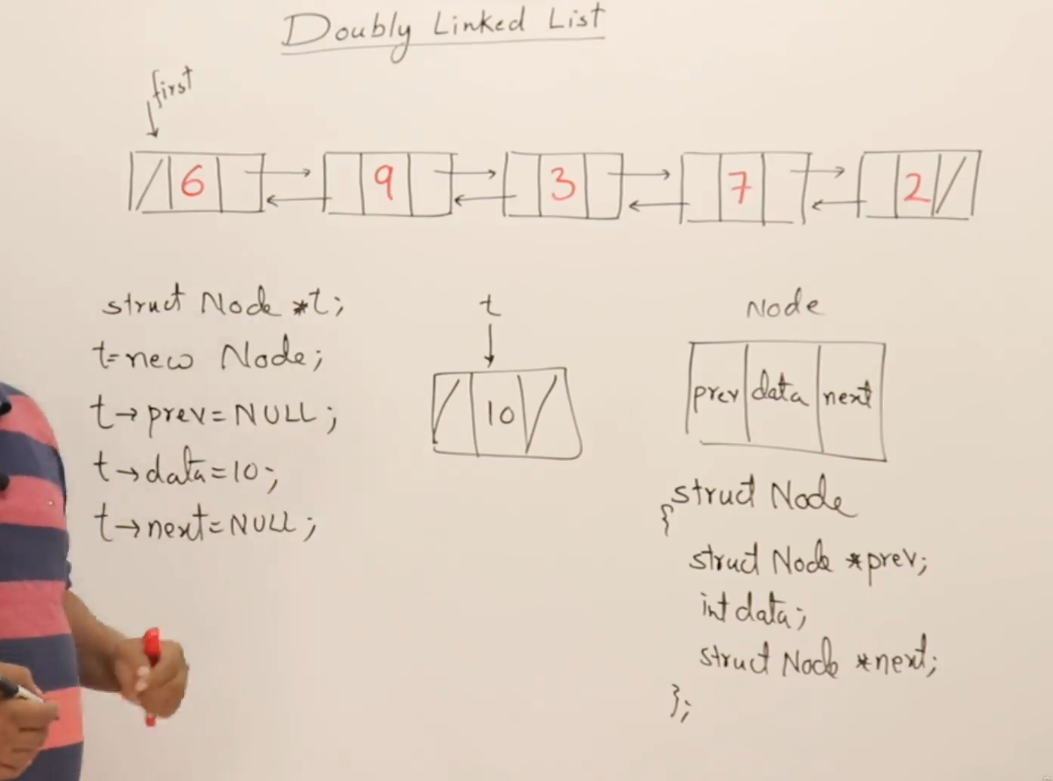 Doubly Linked List
first
6 9 3 7 2
struct Node *t;
t=new Node;
t→prev=NULL;
t→data=10;
t→next=NULL;
t
10
Node
prev data next
struct Node
{
struct Node *prev;
int data;
struct Node *next;
};